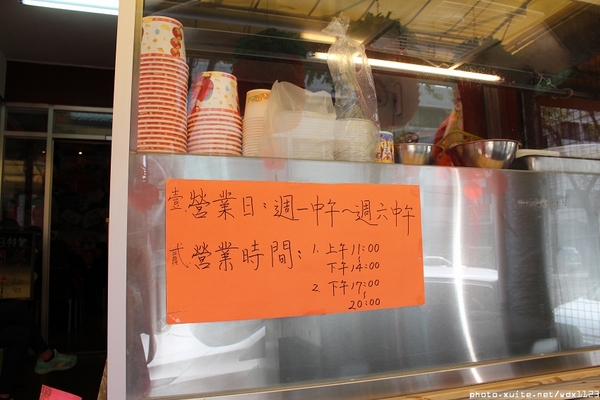 壹.營業日:週一中午~週六中午
貳.營業時間:1.上午11:00
下午14:00
2.下午17:00
20:00
photo.xuite.net/wdx1123